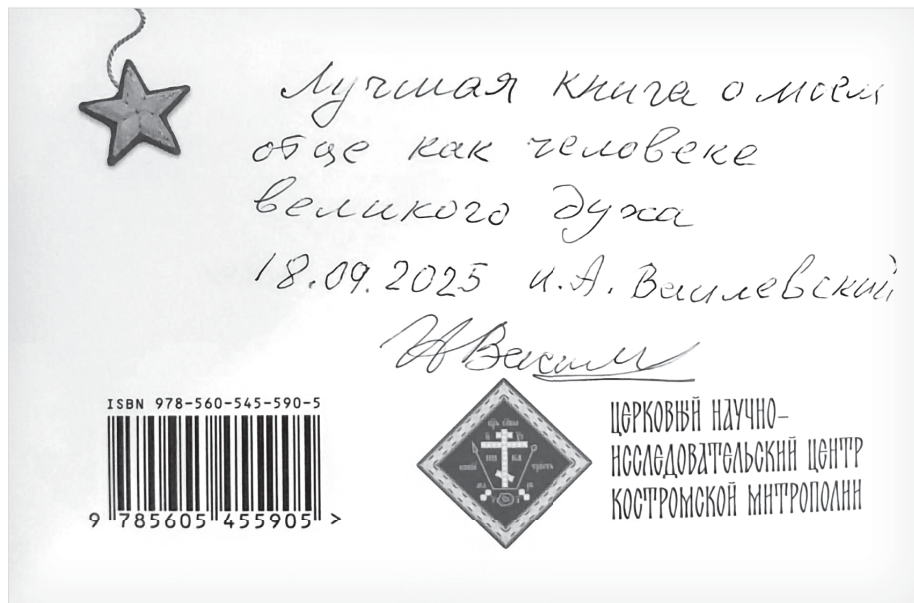 Лучшая книга о моем
отце как человеке
великого духа
18.09.2025 И.А. Василевский
ISBN 978-560-545-590-5
9 785605 455905 >
ЦЕРКОВНЫЙ НАУЧНО-
ИССЛЕДОВАТЕЛЬСКИЙ ЦЕНТР
КОСТРОМСКОЙ МИТРОПОЛИИ